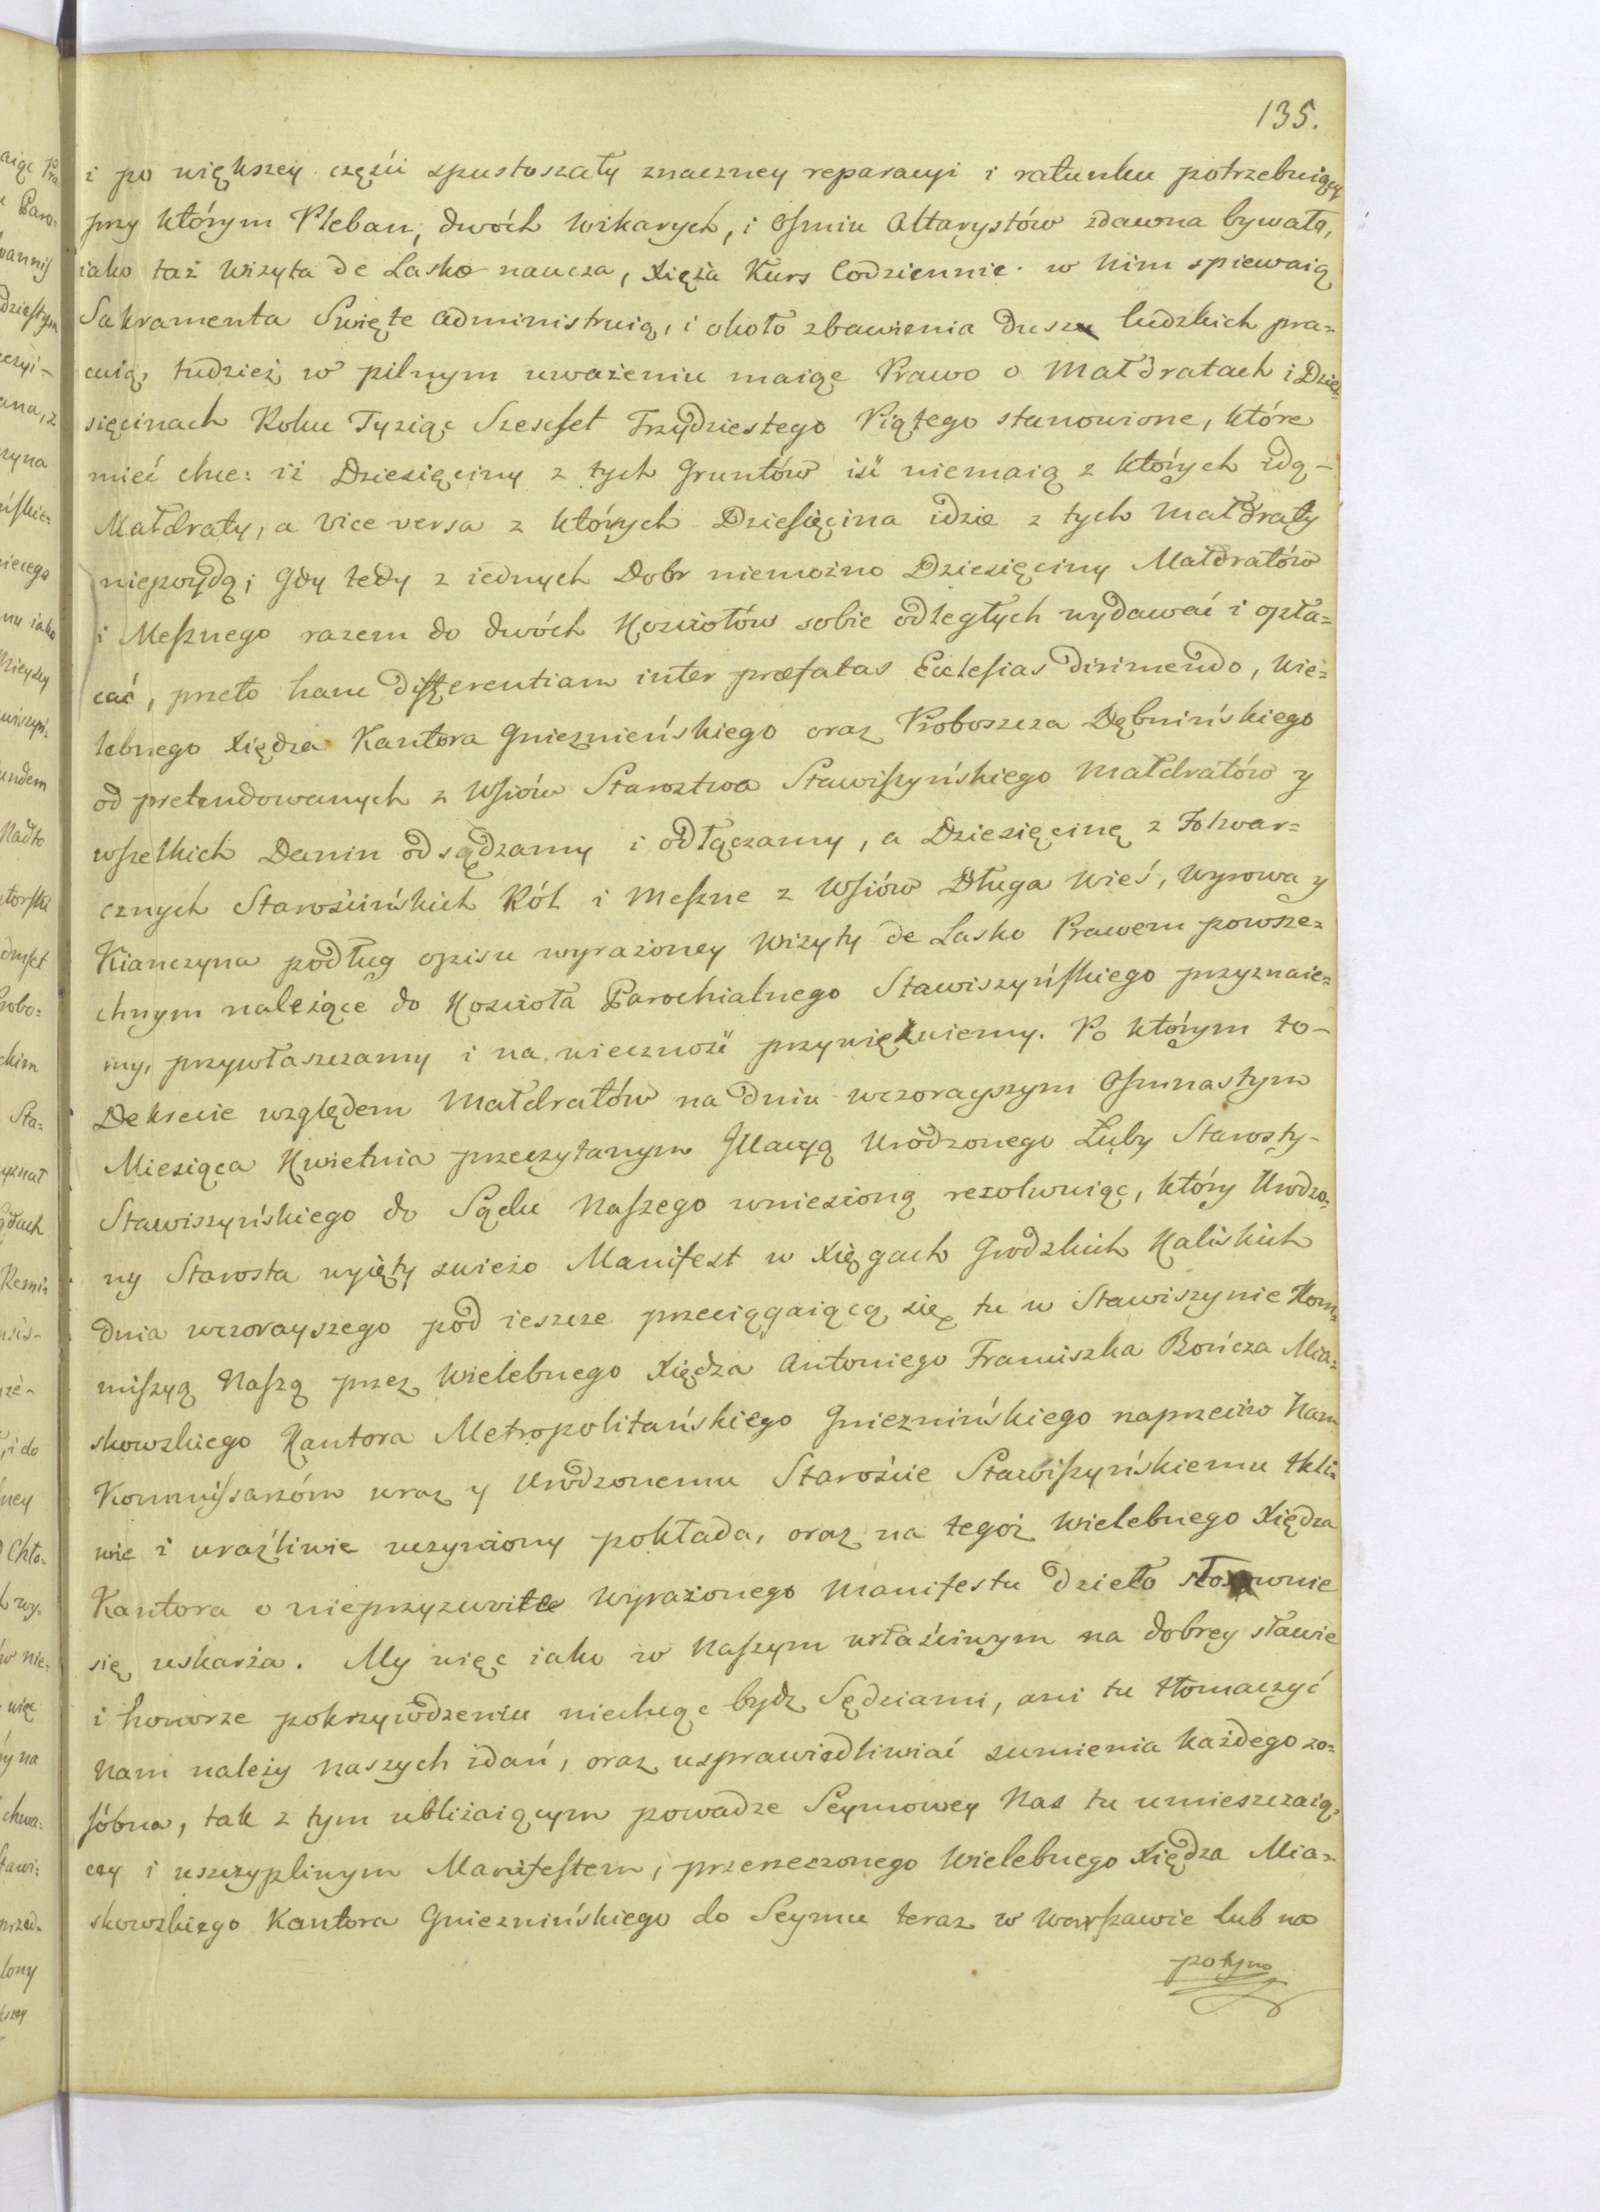 135.
i po większey częśći spustoszały znaczney reparacyi i ratunku potrzebuiący
przy którym Pleban, dwóch Wikarych, i Osmiu Altarystów zdawna bywało,
iako taż Wizyta de Lasko naucza, Xięża Kurs Codziennie w Nim spiewaią
Sakramenta Święte administruią, i około zbawienia dusz ludzkich pra=
cuią, tudzież w pilnym uważeniu maiąc Prawo o Małdratach i Dzie=
sięcinach Roku Tysiąc Szesćset Trzydziestego Piątego stanowione, które
mieć chce: iż Dziesięciny z tych Gruntów iść niemaią z których idą -
Małdraty, a vice versa z których Dziesięcina idzie z tych Małdraty
niepoydą; Gdy tedy z iednych Dobr niemożno Dziesięciny Małdratów
i Mesznego razem do dwóch Kosciołów sobie odległych wydawać i opła=
cać, przeto hanc differentiam inter præfatas Ecclesias dirimendo, Wie=
lebnego Xiędza Kantora Gnieznieńskiego oraz Proboszcza Dębnińskiego
od pretendowanych z Wsiów Starostwa Stawiszyńskiego Małdratów y
wszelkich Danin odsądzamy i odłączamy, a Dziesięcinę z Folwar=
cznych Starościńskich Ról i Meszne z Wsiów Długa Wieś, Wyrowa y
Kianczyna podług opisu wyrażoney Wizyty de Lasko Prawem powsze=
chnym należące do Koscioła Parochialnego Stawiszyńskiego przyznaie=
my, przywłaszczamy i na wieczność przywięzuiemy. Po którym to -
Dekrecie względem Małdratów na dniu wczorayszym Osmnastym
Miesiąca Kwietnia przeczytanym Illacyą Urodzonego Łuby Starosty -
Stawiszyńskiego do Sądu Naszego wniesioną rezolwuiąc, który Urodzo=
ny Starosta wyięty swieżo Manifest w Xięgach Grodzkich Kaliskich
dnia wczorayszego pod ieszcze przeciągaiącą się tu w Stawiszynie Kom=
missyą Naszą przez Wielebnego Xiędza Antoniego Franciszka Bończa Mia=
skowskiego Kantora Metropolitańskiego Gniezninskiego naprzeciw Nam
Kommissarzóm uraz y Urodzonemu Starośćie Stawiszyńskiemu tkli=
wie i uraźliwie uczyniony pokłada, oraz na tegoż Wielebnego Xiędza
Kantora o nieprzyzwoite wyrażonego Manifestu dzieło stosownie
się uskarża. My więc iako w Naszym właśćiwym na dobrey sławie
i honorze pokrzywdzeniu niechcąc bydz Sędziami, ani tu tłomaczyć
Nam należy naszych zdań, oraz usprawiedliwiać sumienia każdego zo=
sóbna, tak z tym ubliżaiącym powadze Seymowey Nas tu umieszczaią=
cey i uszczypliwym Manifestem, przerzeczonego Wielebnego Xiędza Mia=
skowskiego Kantora Gniezninskiego do Seymu teraz w Warszawie lub na
potym